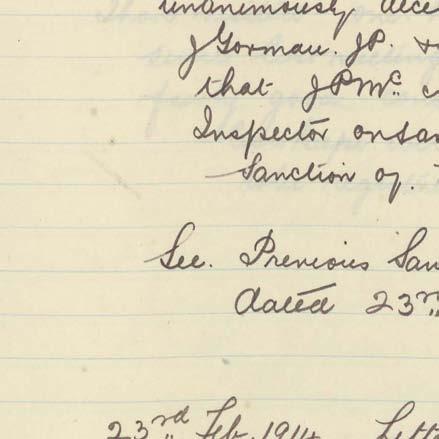 unanimously
J Gorman. J.P. &
that J P Mc
Inspector
Sanction of.
See. Previous San
dated 23rd
23rd Feb. 1914 Lett